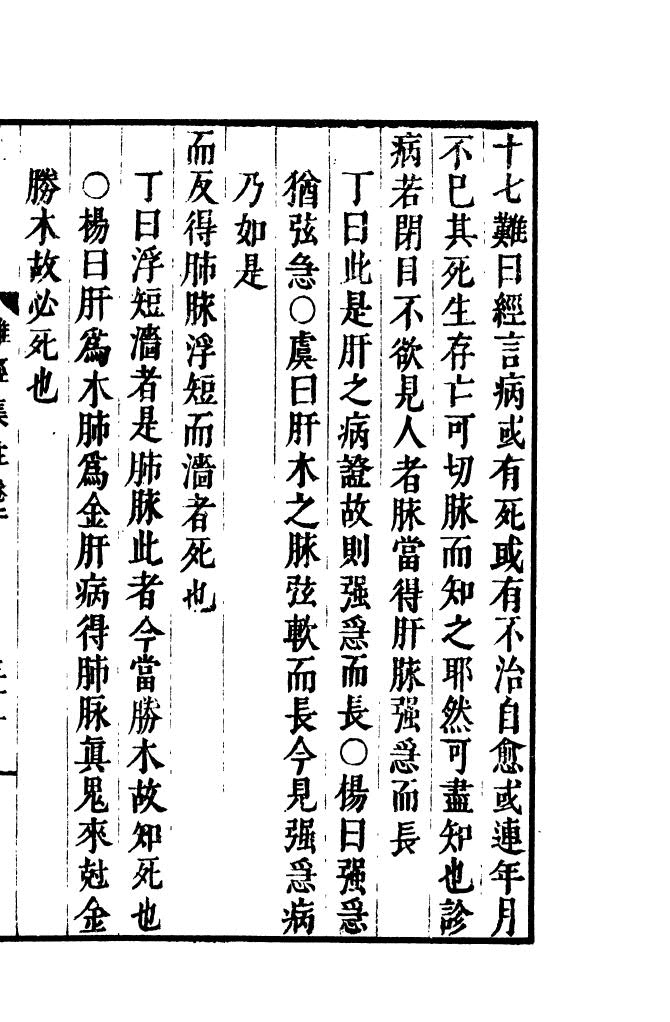 十七難曰經言病或有死或有不治自愈或連年月
不巳其死生存亡可切脉而知之耶然可盡知也診
病若閉目不欲見人者脉當得肝脉强急而長
丁曰此是肝之病證故則强急而長○楊曰强急
猶弦急○虞曰肝木之脉弦軟而長今見强急病
乃如是
而反得肺脉浮短而濇者死也
丁曰浮短濇者是肺脉此者今當勝木故知死也
○楊曰肝爲木肺爲金肝病得肺脉眞鬼來尅金
勝木故必死也